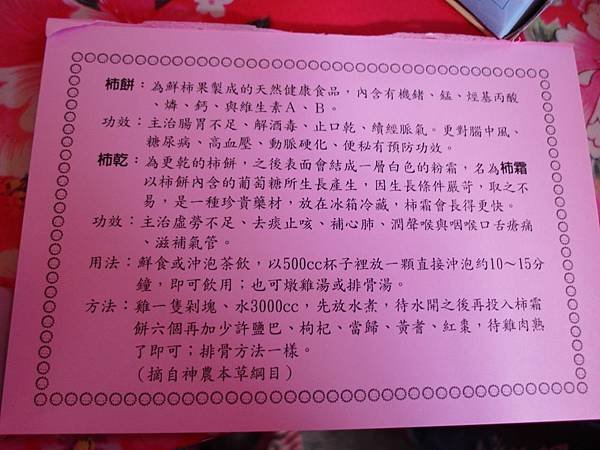 柿餅：為鮮柿果製成的天然健康食品，內含有機鍺、錳、煙基丙酸
、燐、鈣、與維生素A、B。
功效：主治腸胃不足、解酒毒、止口乾、續經脈氣。更對腦中風、
糖尿病、高血壓、動脈硬化、便秘有預防功效。
柿乾：為更乾的柿餅，之後表面會結成一層白色的粉霜，名為柿霜
以柿餅內含的葡萄糖所生長產生，因生長條件嚴苛，取之不
易，是一種珍貴藥材，放在冰箱冷藏，柿霜會長得更快。
功效：主治虛勞不足、去痰止咳、補心肺、潤聲喉與咽喉口舌瘡痛
、滋補氣管。
用法：鮮食或沖泡茶飲，以500cc杯子裡放一顆直接沖泡約10～15分
鐘，即可飲用；也可燉雞湯或排骨湯。
方法：雞一隻剁塊、水3000cc，先放水煮，待水開之後再投入柿霜
餅六個再加少許鹽巴、枸杞、當歸、黃耆、紅棗，待雞肉熟
了即可；排骨方法一樣。
（摘自神農本草綱目）